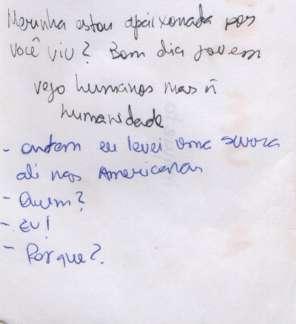 Merinha estou apaixonada por
você viu? Bom dia jovem
vejo humanos mas ñ
humanidade
- ontem eu levei uma surra
ali nas Americanas
- Quem?
- EU!
- Por que?